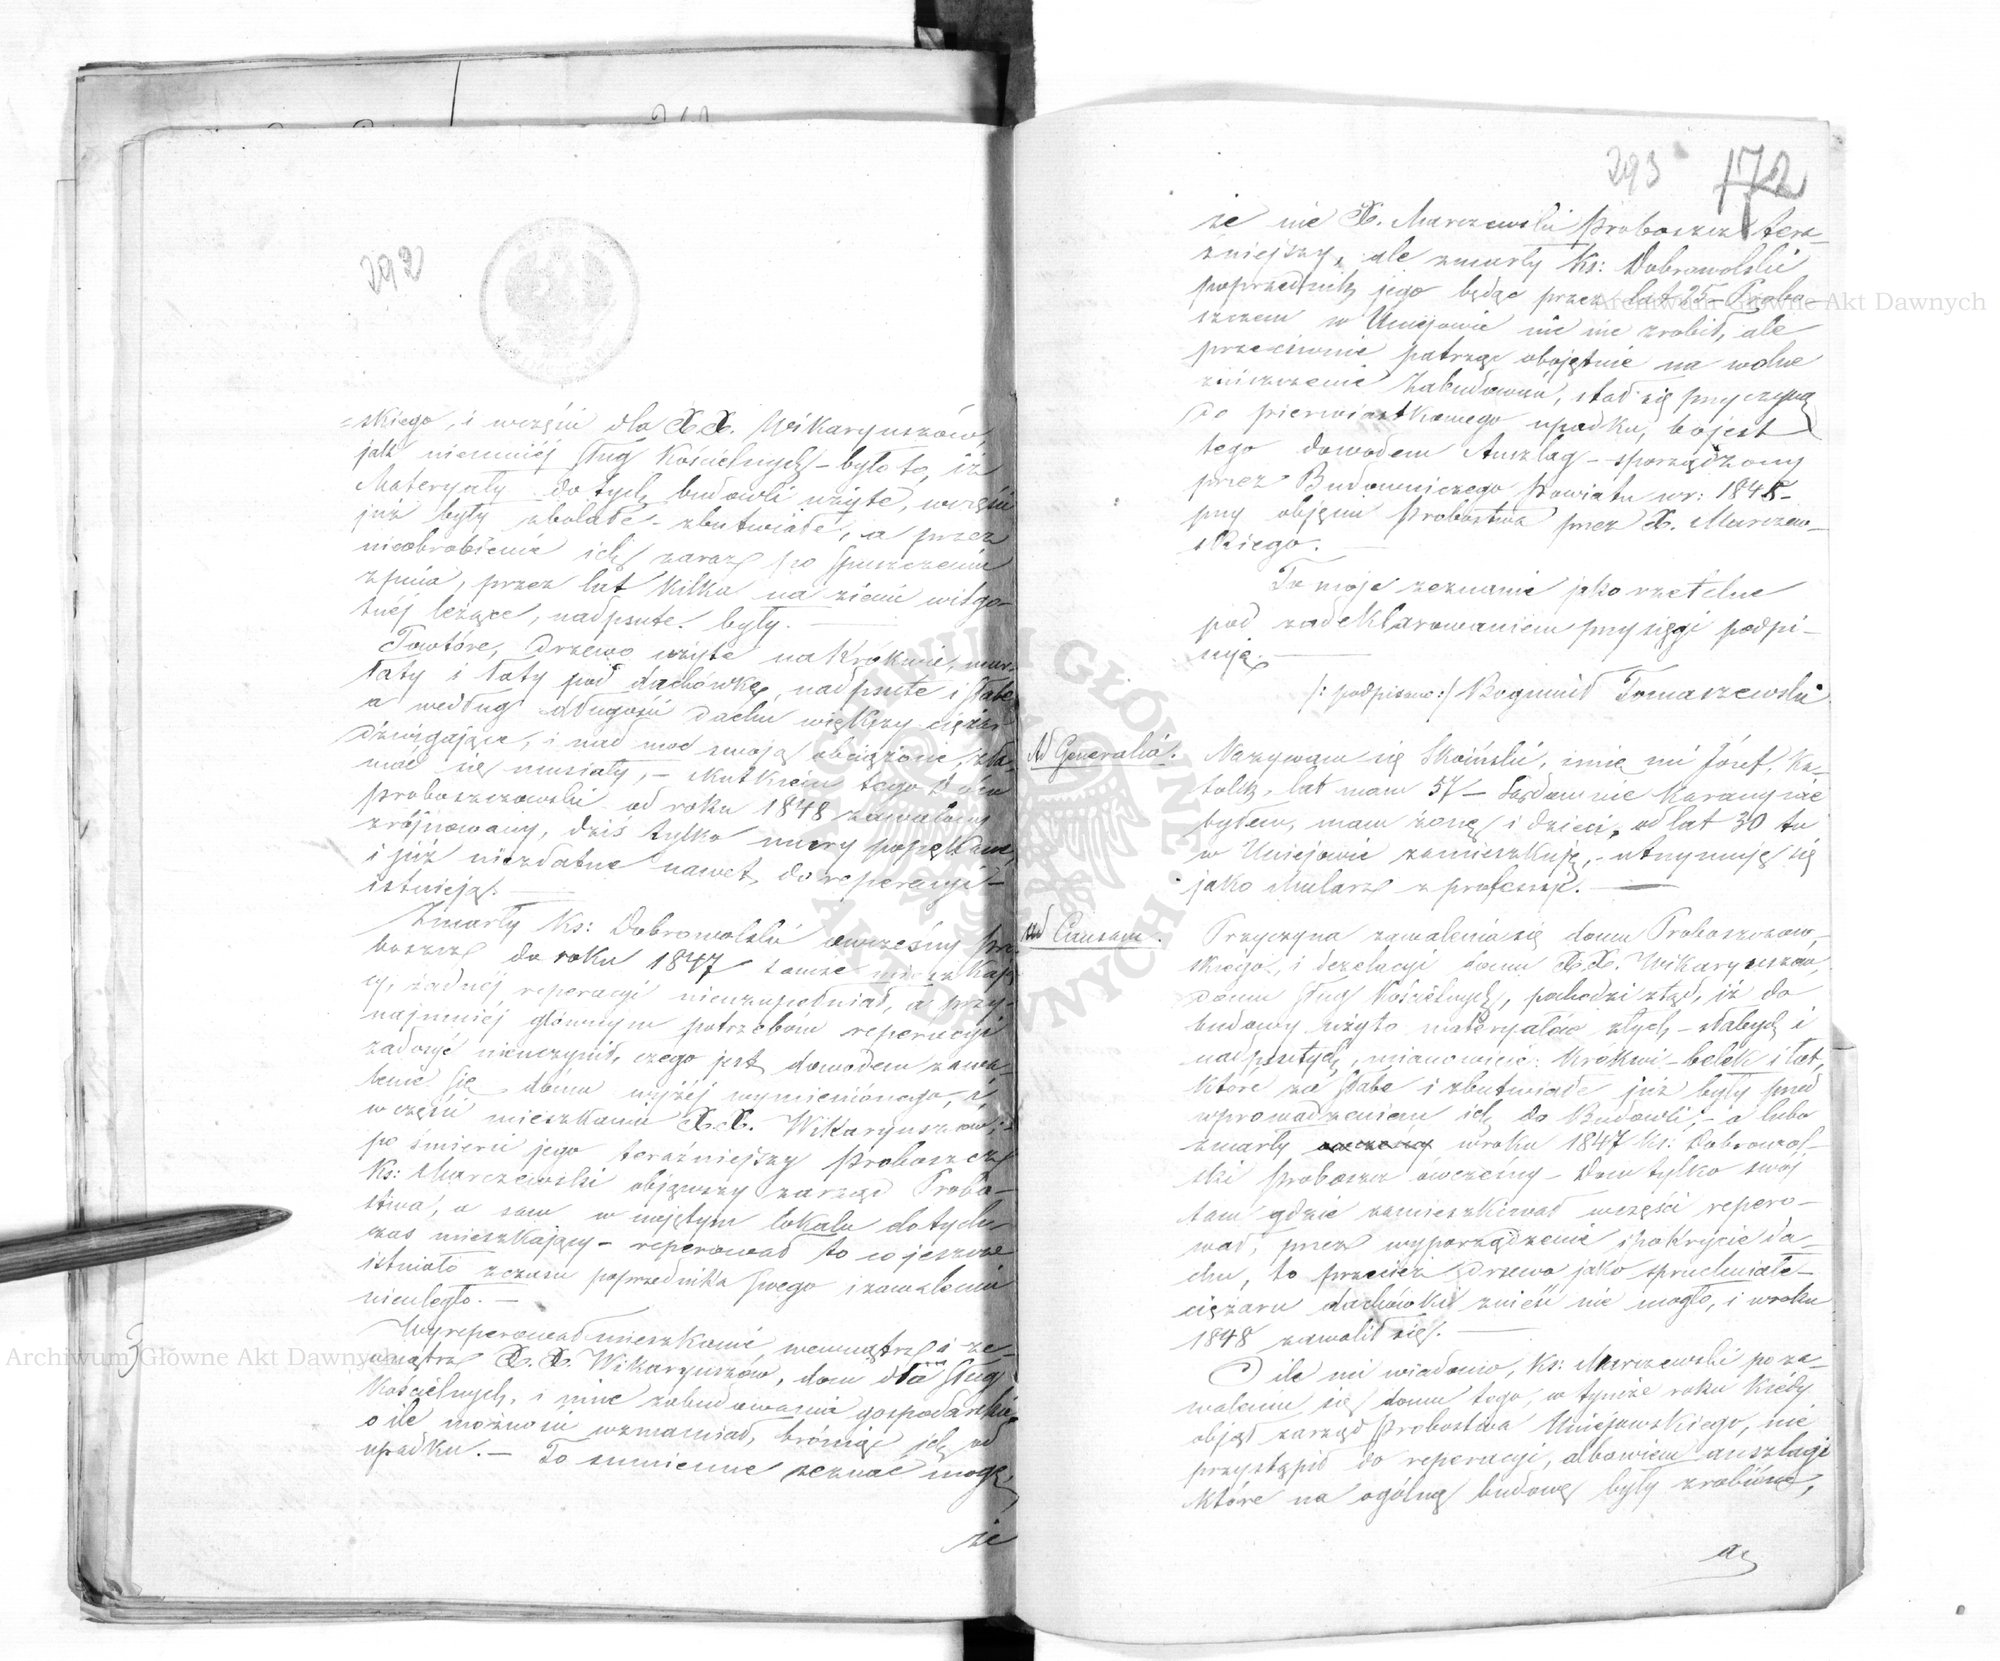 292
=skiego, i części dla X.X. Wikaryuszów,
jak niemniéj sług Kościelnych – było to, iż
Materyały do tych budowli użyte, w części
już były zbolałe – zbutwiałe, a przez
nieobrobienie ich zaraz po spuszczeniu
z pnia, przez lat kilka na ziemi wilgo-
tnéj leżące, nadpsute były. —
Powtóre, drzewo użyte na Krokwie, mur-
łaty i łaty pod dachówkę, nadpsute i słabe
a według długości dachu większy ciężar
dźwigające, i nad moc swoją obciążone, zła-
mać się musiały, – skutkiem tego Dóm
proboszczowski od roku 1848 zawalony
zrójnowany, dziś tylko mury popękane,
i już niezdatne nawet, do reperacyi –
istnieją. —
Zmarły Ks: Dobrowolski owczesny pro-
boszcz do roku 1847 tamże mieszkają-
cy, żadnéj reperacyi nieuzupełniał, a przy-
najmniéj głównym potrzebom reperacyi
zadosyć nieuczynił, czego jest dowodem zawa-
lenie się domu wyżéj wymienionego, i
w części mieszkania X.X. Wikaryuszów;
po śmierci jego teraźniejszy Proboszcz
Ks: Marczewski objąwszy zarząd Probo-
stwa, a sam w najętym lokalu dotych-
czas mieszkający – reperował to co jeszcze
istniało z czasu poprzednika swego i zawaleniu
nieuległo. —
Wyreperował mieszkanie, wewnątrz i ze-
wnątrz X.X. Wikaryuszów, dom dla sług
Kościelnych, i inne zabudowania gospodarskie
o ile możności wzmacniał, broniąc ich od
upadku. — To sumiennie zeznać mogę,
że
293 172
że nie X. Marczewski Proboszcz tera-
źniejszy, ale zmarły Ks: Dobrowolski
poprzednik jego będąc przez lat 25 – Probo-
szczem w Uniejowie nic nie zrobił, ale
przeciwnie patrząc obojętnie na wolne
zniszczenie Zabudowań, stał się przyczyną
do pierwiastkowego upadku, bo jest
tego dowodem Anszlag – sporządzony
przez Budowniczego Powiatu w r: 1848 –
przy objęciu Probostwa przez X. Marczew-
skiego. —
To moje zeznanie jako rzetelne
pod zadeklarowaniem przysięgi podpi-
suję. —
/: podpisano :/ Bogumił Tomaszewski
Ad Generalia. Nazywam się Skoiński, imię mi Józef, Ka-
tolik, lat mam 57 – Sądownie karany nie
byłem, mam żonę i dzieci, od lat 30 tu
w Uniejowie zamieszkuję, – utrzymuję się
jako Mularz z professyi. —
ad Causam. Przyczyna zawalenia się domu Proboszczow-
skiego, i dezelacyi domu X.X. Wikaryuszów,
domu sług Kościelnych, pochodzi ztąd, iż do
budowy użyto materyałów złych – słabych i
nadpsutych, mianowicie: Krókwi – belek i łat,
które za słabe i zbutwiałe już były przed
wprowadzeniem ich do Budowli; – a lubo
zmarły w roku 1847 Ks: Dobrowol-
ski proboszcz ówczesny – Dom tylko swój
tam gdzie zamieszkiwał w części repero-
wał, przez wyporządzenie i pokrycie da-
chu, to przecież drzewo jako spruchniałe –
ciężaru dachówki znieść nie mogło, i w roku
1848 zawalił się. —
O ile mi wiadomo, Ks: Marczewski po za-
waleniu się domu tego, w tymże roku kiedy
objął zarząd Probostwa Uniejowskiego, nie
przystąpił do reperacyi, albowiem anszlagi
które na ogólną budowę były zrobione,
a